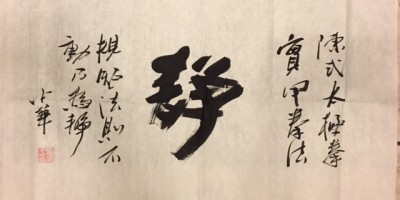 陳式太極拳
實用拳法
靜
規矩法則不
動乃為靜
華